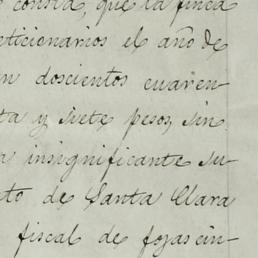 consta, que la finca
eticionarios el año de
n doscientos cuaren-
ta y siete pesos, sin
a insignificante su-
to de Santa Clara
fiscal de fojas cin-